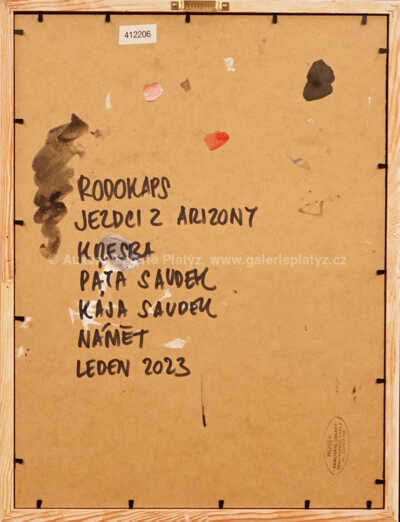 412206
RODOKAPS
JEZDCI Z ARIZONY
KRESBA
PÁŤA SAUDEK
KÁJA SAUDEK
NÁMĚT
LEDEN 2023
Platýz, www.galerieplatyz.cz